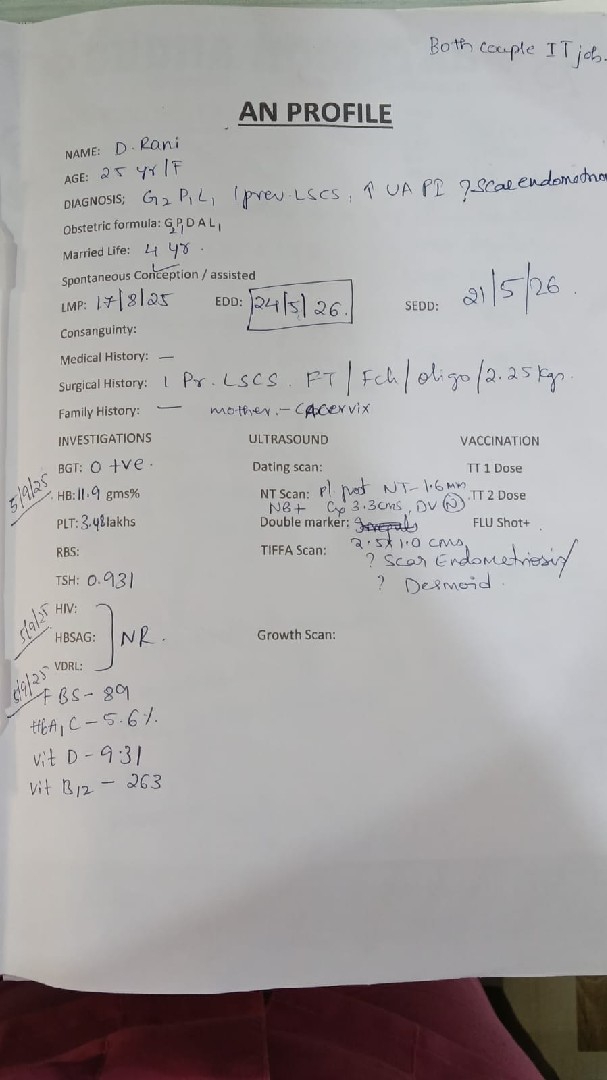 Both couple IT job.
AN PROFILE
NAME: D. Rani
AGE: 25 yr/F
DIAGNOSIS; G2 P1 L1 / prev. LSCS, ↑ UA PI ? Scar endometrio
Obstetric formula: G2P1D A L1
Married Life: 4 yr.
Spontaneous Conception / assisted
LMP: 17/8/25 EDD: 24/5/26. SEDD: 21/5/26.
Consanguinty:
Medical History: —
Surgical History: 1 Pr. LSCS. FT / Fch / oligo / 2.25 kgs.
Family History: — mother. - CA cervix
INVESTIGATIONS ULTRASOUND VACCINATION
BGT: O +ve. Dating scan: TT 1 Dose
5/9/25 HB: 11.9 gms% NT Scan: pl post NT - 1.6 mm TT 2 Dose
NB+ Cx 3.3cms, DV (N)
PLT: 3.48lakhs Double marker: FLU Shot+
2.5 x 1.0 cms
RBS: TIFFA Scan: ? Scar Endometriosis/
TSH: 0.931 ? Desmoid.
5/9/25 HIV:
HBSAG: NR. Growth Scan:
VDRL:
5/9/25 FBS - 89
HbA1C - 5.6%.
Vit D - 9.31
Vit B12 - 263